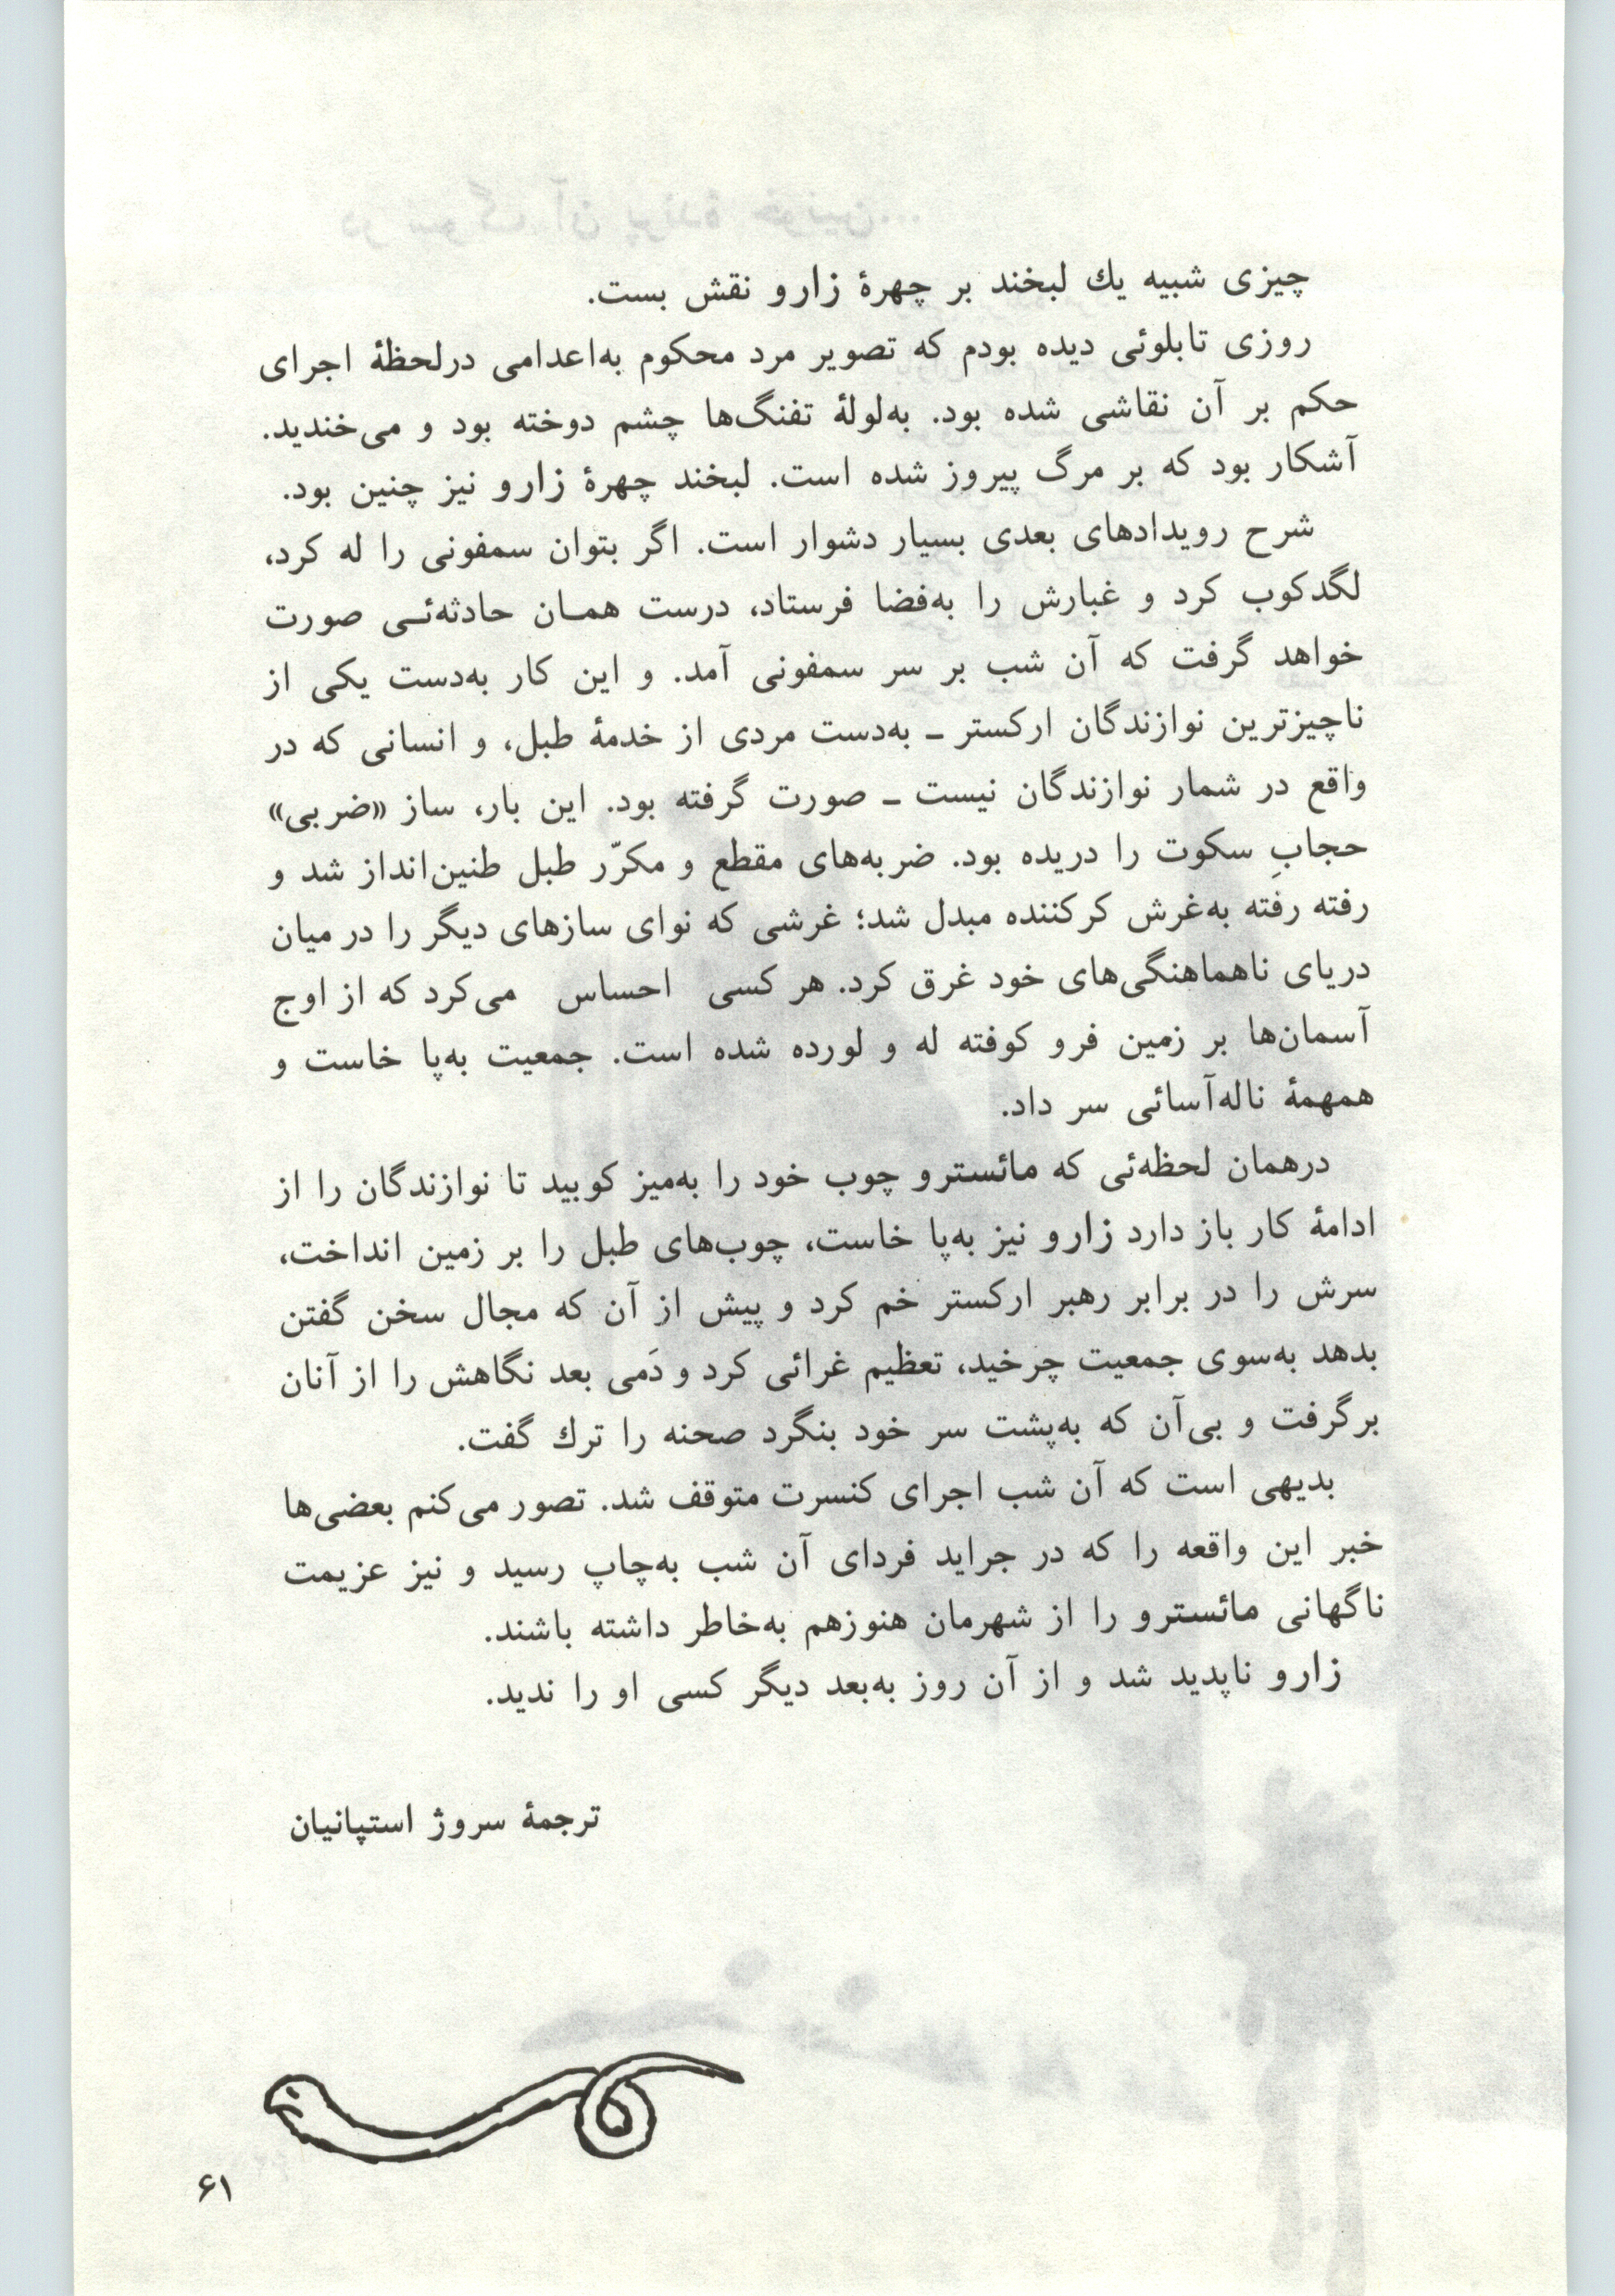 چیزی شبیه یك لبخند بر چهرۀ زارو نقش بست.
روزی تابلوئی دیده بودم که تصویر مرد محکوم به‌اعدامی درلحظۀ اجرای
حکم بر آن نقاشی شده بود. به‌لولۀ تفنگ‌ها چشم دوخته بود و می‌خندید.
آشکار بود که بر مرگ پیروز شده است. لبخند چهرۀ زارو نیز چنین بود.
شرح رویدادهای بعدی بسیار دشوار است. اگر بتوان سمفونی را له کرد،
لگدکوب کرد و غبارش را به‌فضا فرستاد، درست همـان حادثه‌ئـی صورت
خواهد گرفت که آن شب بر سر سمفونی آمد. و این کار به‌دست یکی از
ناچیزترین نوازندگان ارکستر ـ به‌دست مردی از خدمۀ طبل، و انسانی که در
واقع در شمار نوازندگان نیست ـ صورت گرفته بود. این بار، ساز «ضربی»
حجابِ سکوت را دریده بود. ضربه‌های مقطع و مکرّر طبل طنین‌انداز شد و
رفته رفته به‌غرش کرکننده مبدل شد؛ غرشی که نوای سازهای دیگر را در میان
دریای ناهماهنگی‌های خود غرق کرد. هر کسی احساس می‌کرد که از اوج
آسمان‌ها بر زمین فرو کوفته له و لورده شده است. جمعیت به‌پا خاست و
همهمۀ ناله‌آسائی سر داد.
درهمان لحظه‌ئی که مائسترو چوب خود را به‌میز کوبید تا نوازندگان را از
ادامۀ کار باز دارد زارو نیز به‌پا خاست، چوب‌های طبل را بر زمین انداخت،
سرش را در برابر رهبر ارکستر خم کرد و پیش از آن که مجال سخن گفتن
بدهد به‌سوی جمعیت چرخید، تعظیم غرائی کرد و دَمی بعد نگاهش را از آنان
برگرفت و بی‌آن که به‌پشت سر خود بنگرد صحنه را ترك گفت.
بدیهی است که آن شب اجرای کنسرت متوقف شد. تصور می‌کنم بعضی‌ها
خبر این واقعه را که در جراید فردای آن شب به‌چاپ رسید و نیز عزیمت
ناگهانی مائسترو را از شهرمان هنوزهم به‌خاطر داشته باشند.
زارو ناپدید شد و از آن روز به‌بعد دیگر کسی او را ندید.
ترجمۀ سروژ استپانیان
۶۱